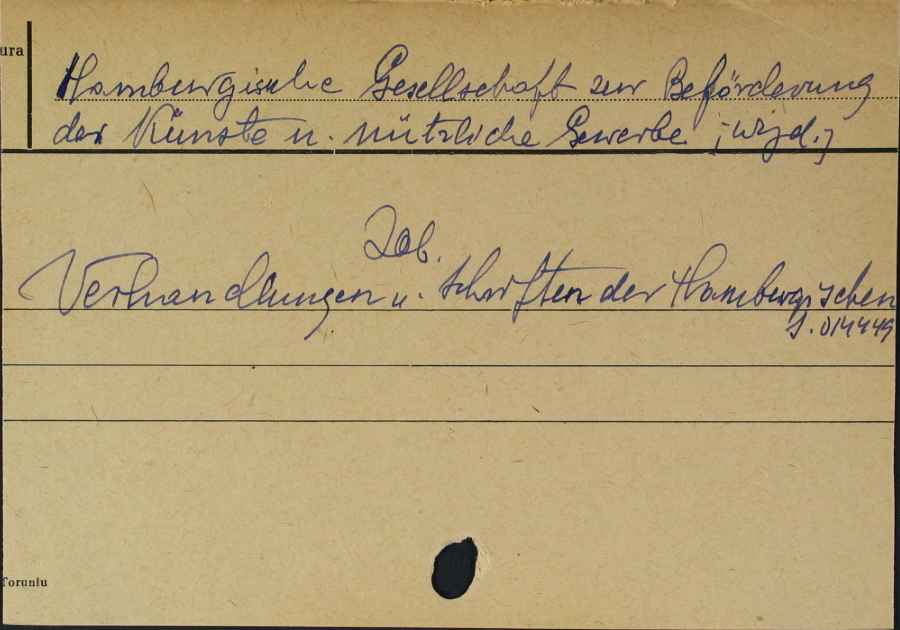 ura
Hamburgische Gesellschaft zur Beförderung
der Künste u. nützliche Gewerbe [wyd.]
Zob.
Verhandlungen u. Schriften der Hamburgischen
S. 014449
Toruniu